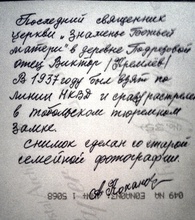 Последний священник
церкви „Знамение Божьей
матери" в деревне Подрезовой
отец Виктор / Кремлёв /
В 1937 году был взят по
линии НКВД и сразу расстрелян
в тобольском тюремном
замке.
Снимок сделан со старой
семейной фотографии.